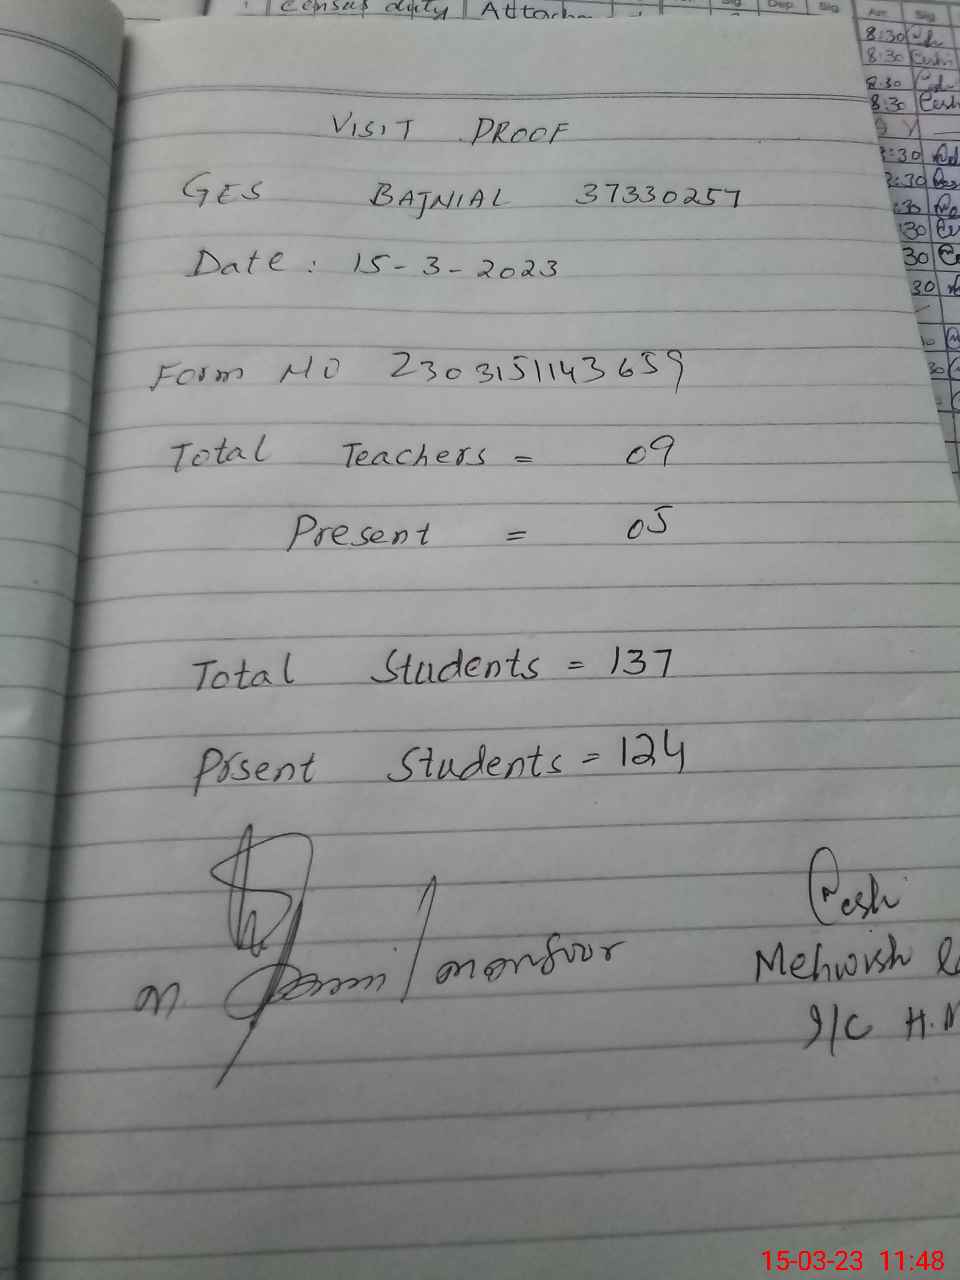 census duty Attach
Arr Sig
8:30
8:30
8:30
8:30
VISIT PROOF
GES BAJNIAL 37330257
Date : 15-3-2023
Form NO 2303151143659
Total Teachers = 09
Present = 05
Total Students = 137
Prsent Students = 124
Mehwish
I/C H.M
15-03-23 11:48